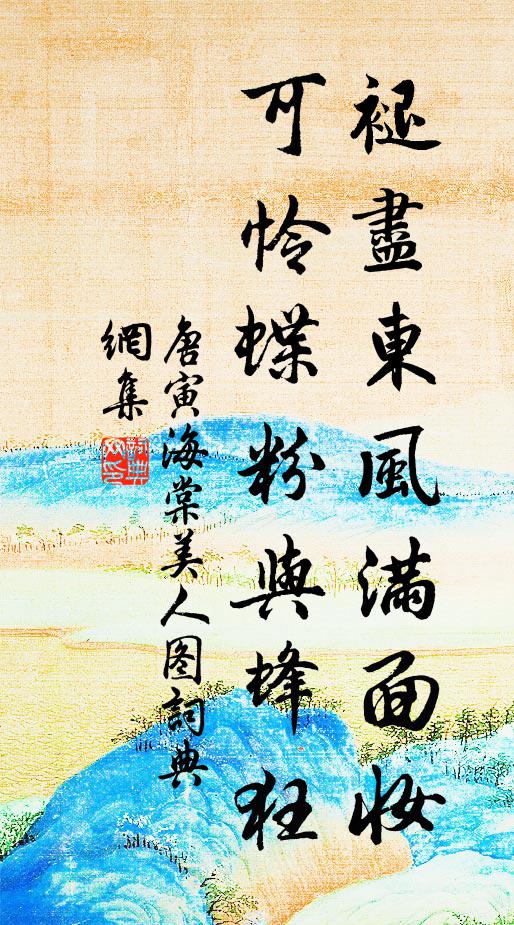 褪盡東風滿面妝
可怜蝶粉與蜂狂
唐寅海棠美人图詞典
網集